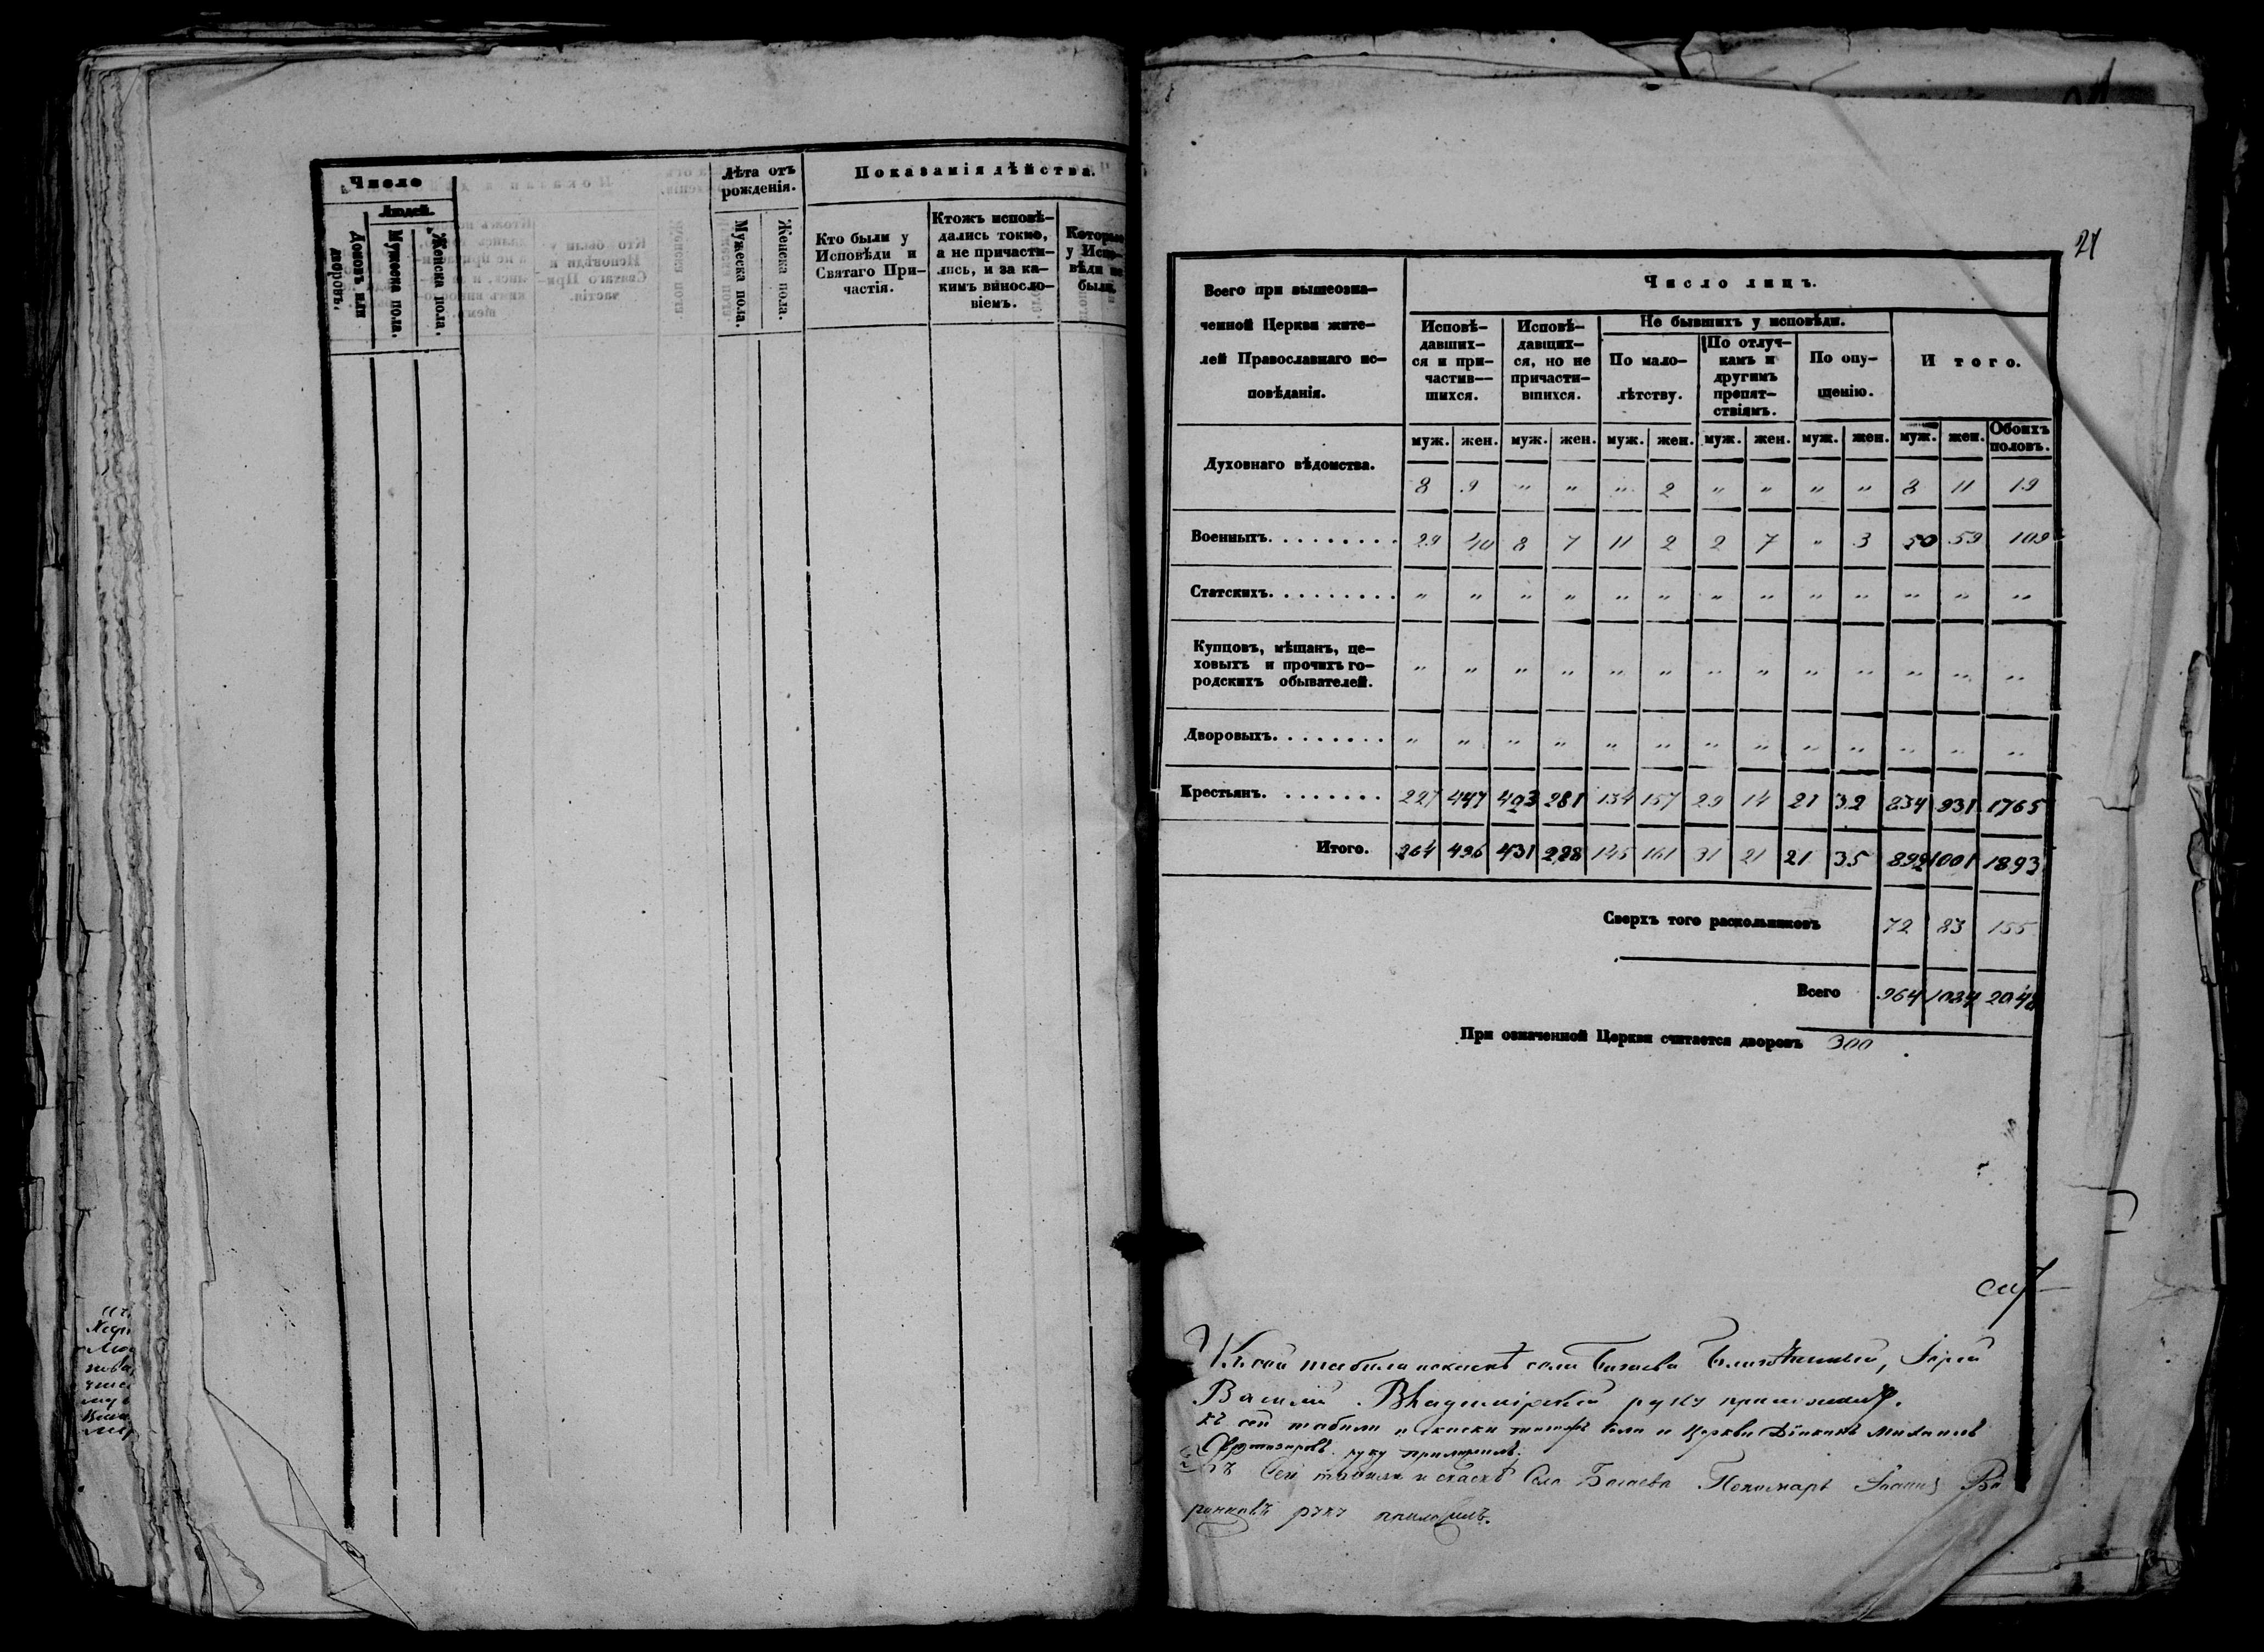 Число
Людей.
Домовъ или дворовъ.
Мужеска пола.
Женска пола.
Лѣта отъ рожденія.
Мужеска пола.
Женска пола.
Показанія дѣйства.
Кто были у
Исповѣди и
Святаго При-
частія.
Ктожъ исповѣ-
дались токмо,
а не причасти-
лись, и за ка-
кимъ винсло-
віемъ.
Которые
у Испо-
вѣди не
были.
21
Всего при вышеозна-
ченной Церкви жите-
лей Православнаго ис-
повѣданія.
Число лицъ.
Исповѣ-
давших-
ся и при-
частив-
шихся.
Исповѣ-
давших-
ся, но не
причасти-
вшихся.
Не бывшихъ у исповѣди.
По мало-
лѣтству.
По отлуч-
камъ и
другимъ
препят-
ствіямъ.
По опу-
щенію.
Итого.
муж. жен. муж. жен. муж. жен. муж. жен. муж. жен. муж. жен. Обоихъ половъ.
Духовнаго вѣдомства. 8 9 " " " 2 " " " " 8 11 19
Военныхъ. 29 40 8 7 11 2 2 7 " 3 50 59 109
Статскихъ. " " " " " " " " " " " " "
Купцовъ, мѣщанъ, це-
ховыхъ и прочихъ го-
родскихъ обывателей. " " " " " " " " " " " " "
Дворовыхъ. " " " " " " " " " " " " "
Крестьянъ. 227 447 423 281 134 157 29 14 21 32 834 931 1765
Итого. 264 496 431 288 145 161 31 21 21 35 892 1001 1893
Сверхъ того раскольниковъ 72 83 155
Всего 964 1084 2048
При означенной Церкви считается дворовъ 300
Къ сей табели и скаскѣ села Іерей
Василій Владимірскій руку приложилъ.
къ сей табели и скаски села и Церкви Діаконъ Михаилъ
руку приложилъ.
Къ Сей табели и скаскѣ Села Пономарь
руку приложилъ.